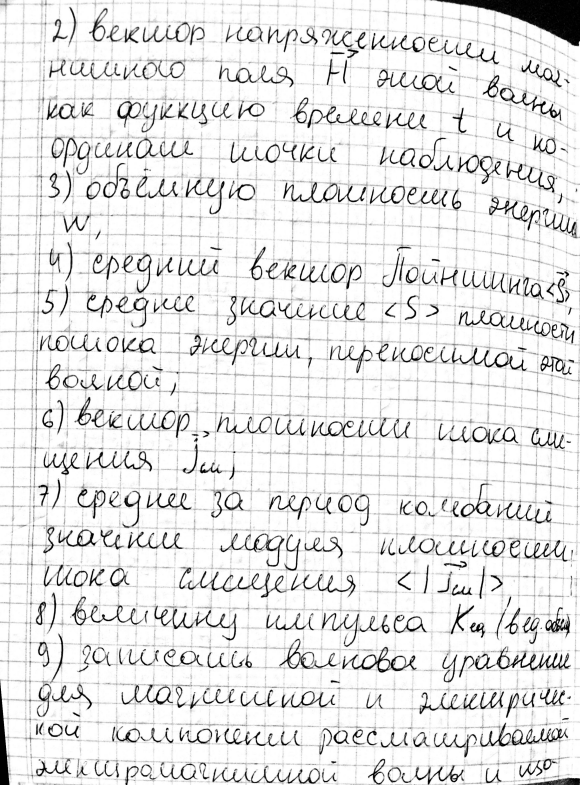 2) вектор напряженности маг-
нитного поля H⃗ этой волны
как функцию времени t и ко-
ординат точки наблюдения,
3) объёмную плотность энергии
w,
4) средний вектор Пойнтинга <S⃗>,
5) среднее значение <S> плотности
потока энергии, переносимой этой
волной;
6) вектор плотности тока сме-
щения j⃗см;
7) среднее за период колебаний
значение модуля плотности
тока смещения <|j⃗см|>,
8) величину импульса Kед (в ед. объёма
9) записать волновое уравнение
для магнитной и электричес-
кой компонент рассматриваемой
электромагнитной волны и изо-